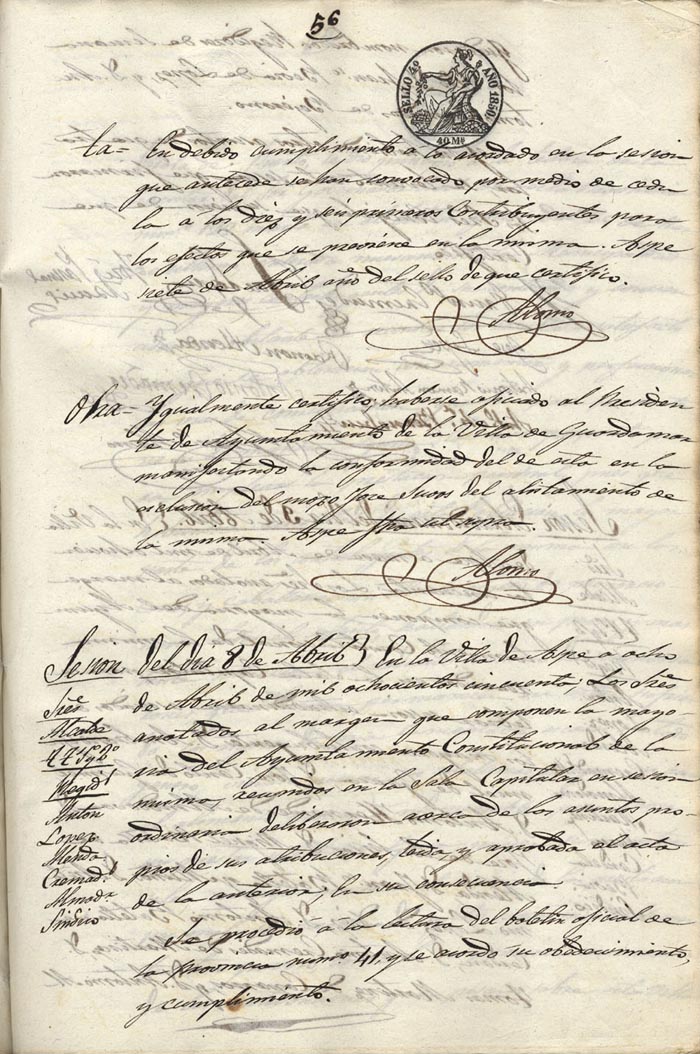 56
SELLO 4º AÑO 1850
40 Ms
ta= En debido cumplimiento a lo acordado en la sesion
que antecede se han convocado por medio de cedu
la a los diez y seis primeros Contribuyentes para
los efectos que se previene en la misma. Aspe
siete de Abril año del sello de que certifico.
Alonso
Otra= Ygualmente certifico haberse oficiado al Presiden
te de Ayuntamiento de la Villa de Guardamar
manifestando la conformidad del de esta en la
esclusion del mozo Jose Juan del alistamiento de
la misma. Aspe
Alonso
Sesion del dia 8 de Abril} En la Villa de Aspe a ocho
de Abril de mil ochocientos cincuenta; Los Sres
anotados al margen que componen la mayo
ria del Ayuntamiento Constitucional de la
misma, reunidos en la Sala Capitular en sesion
ordinaria deliberaron acerca de los asuntos pro
pios de sus atribuciones, leida y aprobada el acta
de la anterior; En su consecuencia.
Sres
Alcalde
Regids
Anton
Lopez
Mend
Cremad
Almod
Sindico
Se procedió a la lectura del boletin oficial de
la provincia numo 41, y se acordo su obedecimiento,
y cumplimiento.